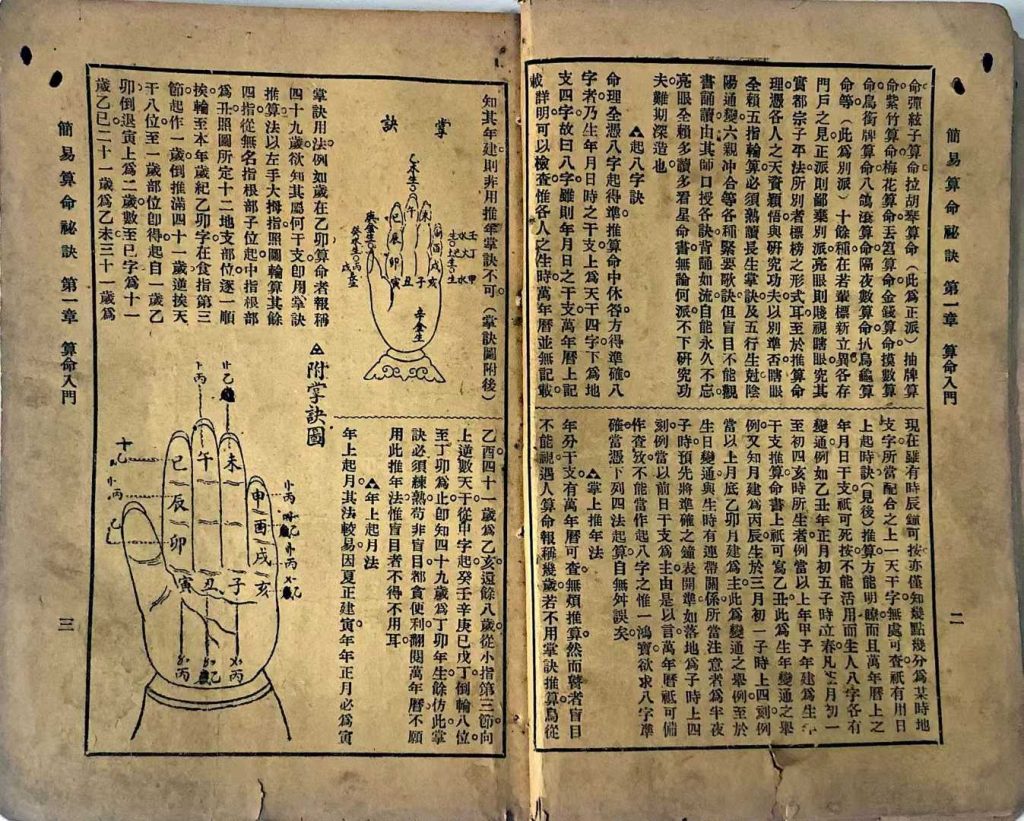 簡易算命祕訣 第一章 算命入門 二
命彈絃子算命拉胡琴算命（此為正派）抽牌算
命紫竹算命梅花算命丟筶算命金錢算命摸數算
命鳥銜牌算命八鴿滾算命隔夜數算命扒烏龜算
命等（此為別派）十餘種在若輩標新立異各存
門戶之見正派則鄙棄別派亮眼則賤視瞎眼究其
實都宗子平法所別者標榜之形式耳至於推算命
理憑各人之天資穎悟與研究功夫以別準否瞎眼
全賴五指輪算必須熟讀長生掌訣及五行生尅陰
陽通變六親冲合等各種緊要歌訣但盲目不能觀
書誦讀由其師口授各訣背誦如流自能永久不忘
亮眼全賴多讀多看星命書無論何派不下研究功
夫難期深造也
▲起八字訣
命理全憑八字起得準推算命中休咎方得準確八
字者乃生年月日時之干支上為天干四字下為地
支四字故曰八字雖則年月日之干支萬年曆上記
載詳明可以檢查惟各人之生時萬年曆並無記載
現在雖有時辰鐘可按亦僅知幾點幾分為某時地
支字所當配合之上一天干字無處可查祇有用日
上起時訣（見後）推算方能明瞭而且萬年曆上之
年月日干支祇可死按不能活用而生人八字各有
變通例如乙丑年正月初五子時立春凡正月初一
至初四亥時所生者例當以上年甲子年建為生年
干支推算命書上祇可寫乙丑此為生年變通之舉
例又如月建為丙辰生於三月初一子時上四刻例
當以上月底乙卯月建為主此為變通之舉例至於
生日變通與生時有連帶關係所當注意者為半夜
子時預先將準確之鐘表開準如落地為子時上四
刻例當以前日干支為主由是以言萬年曆祇可備
作查攷不能當作起八字之惟一鴻寶欲求八字準
確當憑下列四法起算自無舛誤矣
▲掌上推年法
年分干支有萬年曆可查無煩推算然而瞽者盲目
不能視遇人算命報稱幾歲若不用掌訣推算烏從
簡易算命祕訣 第一章 算命入門 三
知其年建則非用推年掌訣不可（掌訣圖附後）
掌訣
乙木生
午
未
巳
申
辰
酉
卯
戌
寅
丑
子
亥
辛金生
掌訣用法例如歲在乙卯算命者報稱
四十九歲欲知其屬何干支卽用掌訣
推算法以左手大拇指照圖輪算其餘
四指從無名指根部子位起中指根部
為丑照圖所定十二地支部位逐一順
挨輪至本年歲紀乙卯字在食指第三
節起作一歲倒推滿四十一歲逆挨天
干八位至一歲部位卽得起自一歲乙
卯倒退寅上為二歲數至巳字為十一
歲乙巳二十一歲為乙未三十一歲為
▲附掌訣圖
乙酉四十一歲為乙亥還餘八歲從小指第三節向
上逆數天干從甲字起癸壬辛庚己戊丁倒輪八位
至丁卯為止卽知四十九歲為丁卯年生餘仿此掌
訣必須練熟苟非盲目都貪便利翻閱萬年曆不願
用此推年法惟盲目者不得不用耳
▲年上起月法
年上起月其法較易因夏正建寅年年正月必為寅
午
未
巳
申
辰
酉
卯
戌
寅
丑
子
亥